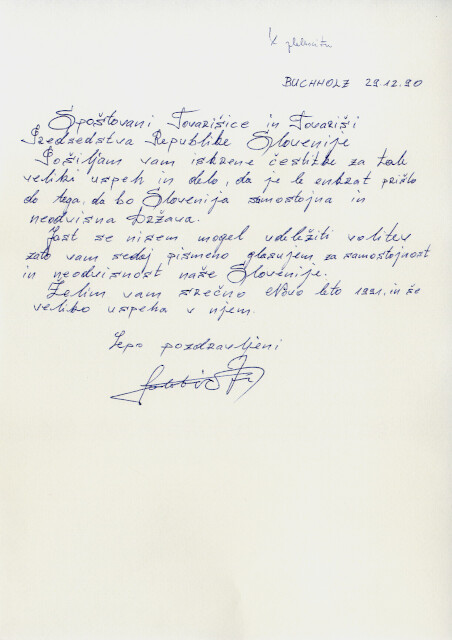 BUCHHOLZ 29.12.90
Spoštovani Tovarišice in Tovariši
Predsedstva Republike Slovenije
Pošiljam vam iskrene čestitke za tak
veliki uspeh in delo, da je le enkrat prišlo
do tega, da bo Slovenija samostojna in
neodvisna Država.
Jast se nisem mogel udeležiti volitev
zato vam sedaj pismeno glasujem za samostojnost
in neodvisnost naše Slovenije.
Želim vam srečno Novo leto 1991, in še
veliko uspeha v njem.
Lepo pozdravljeni